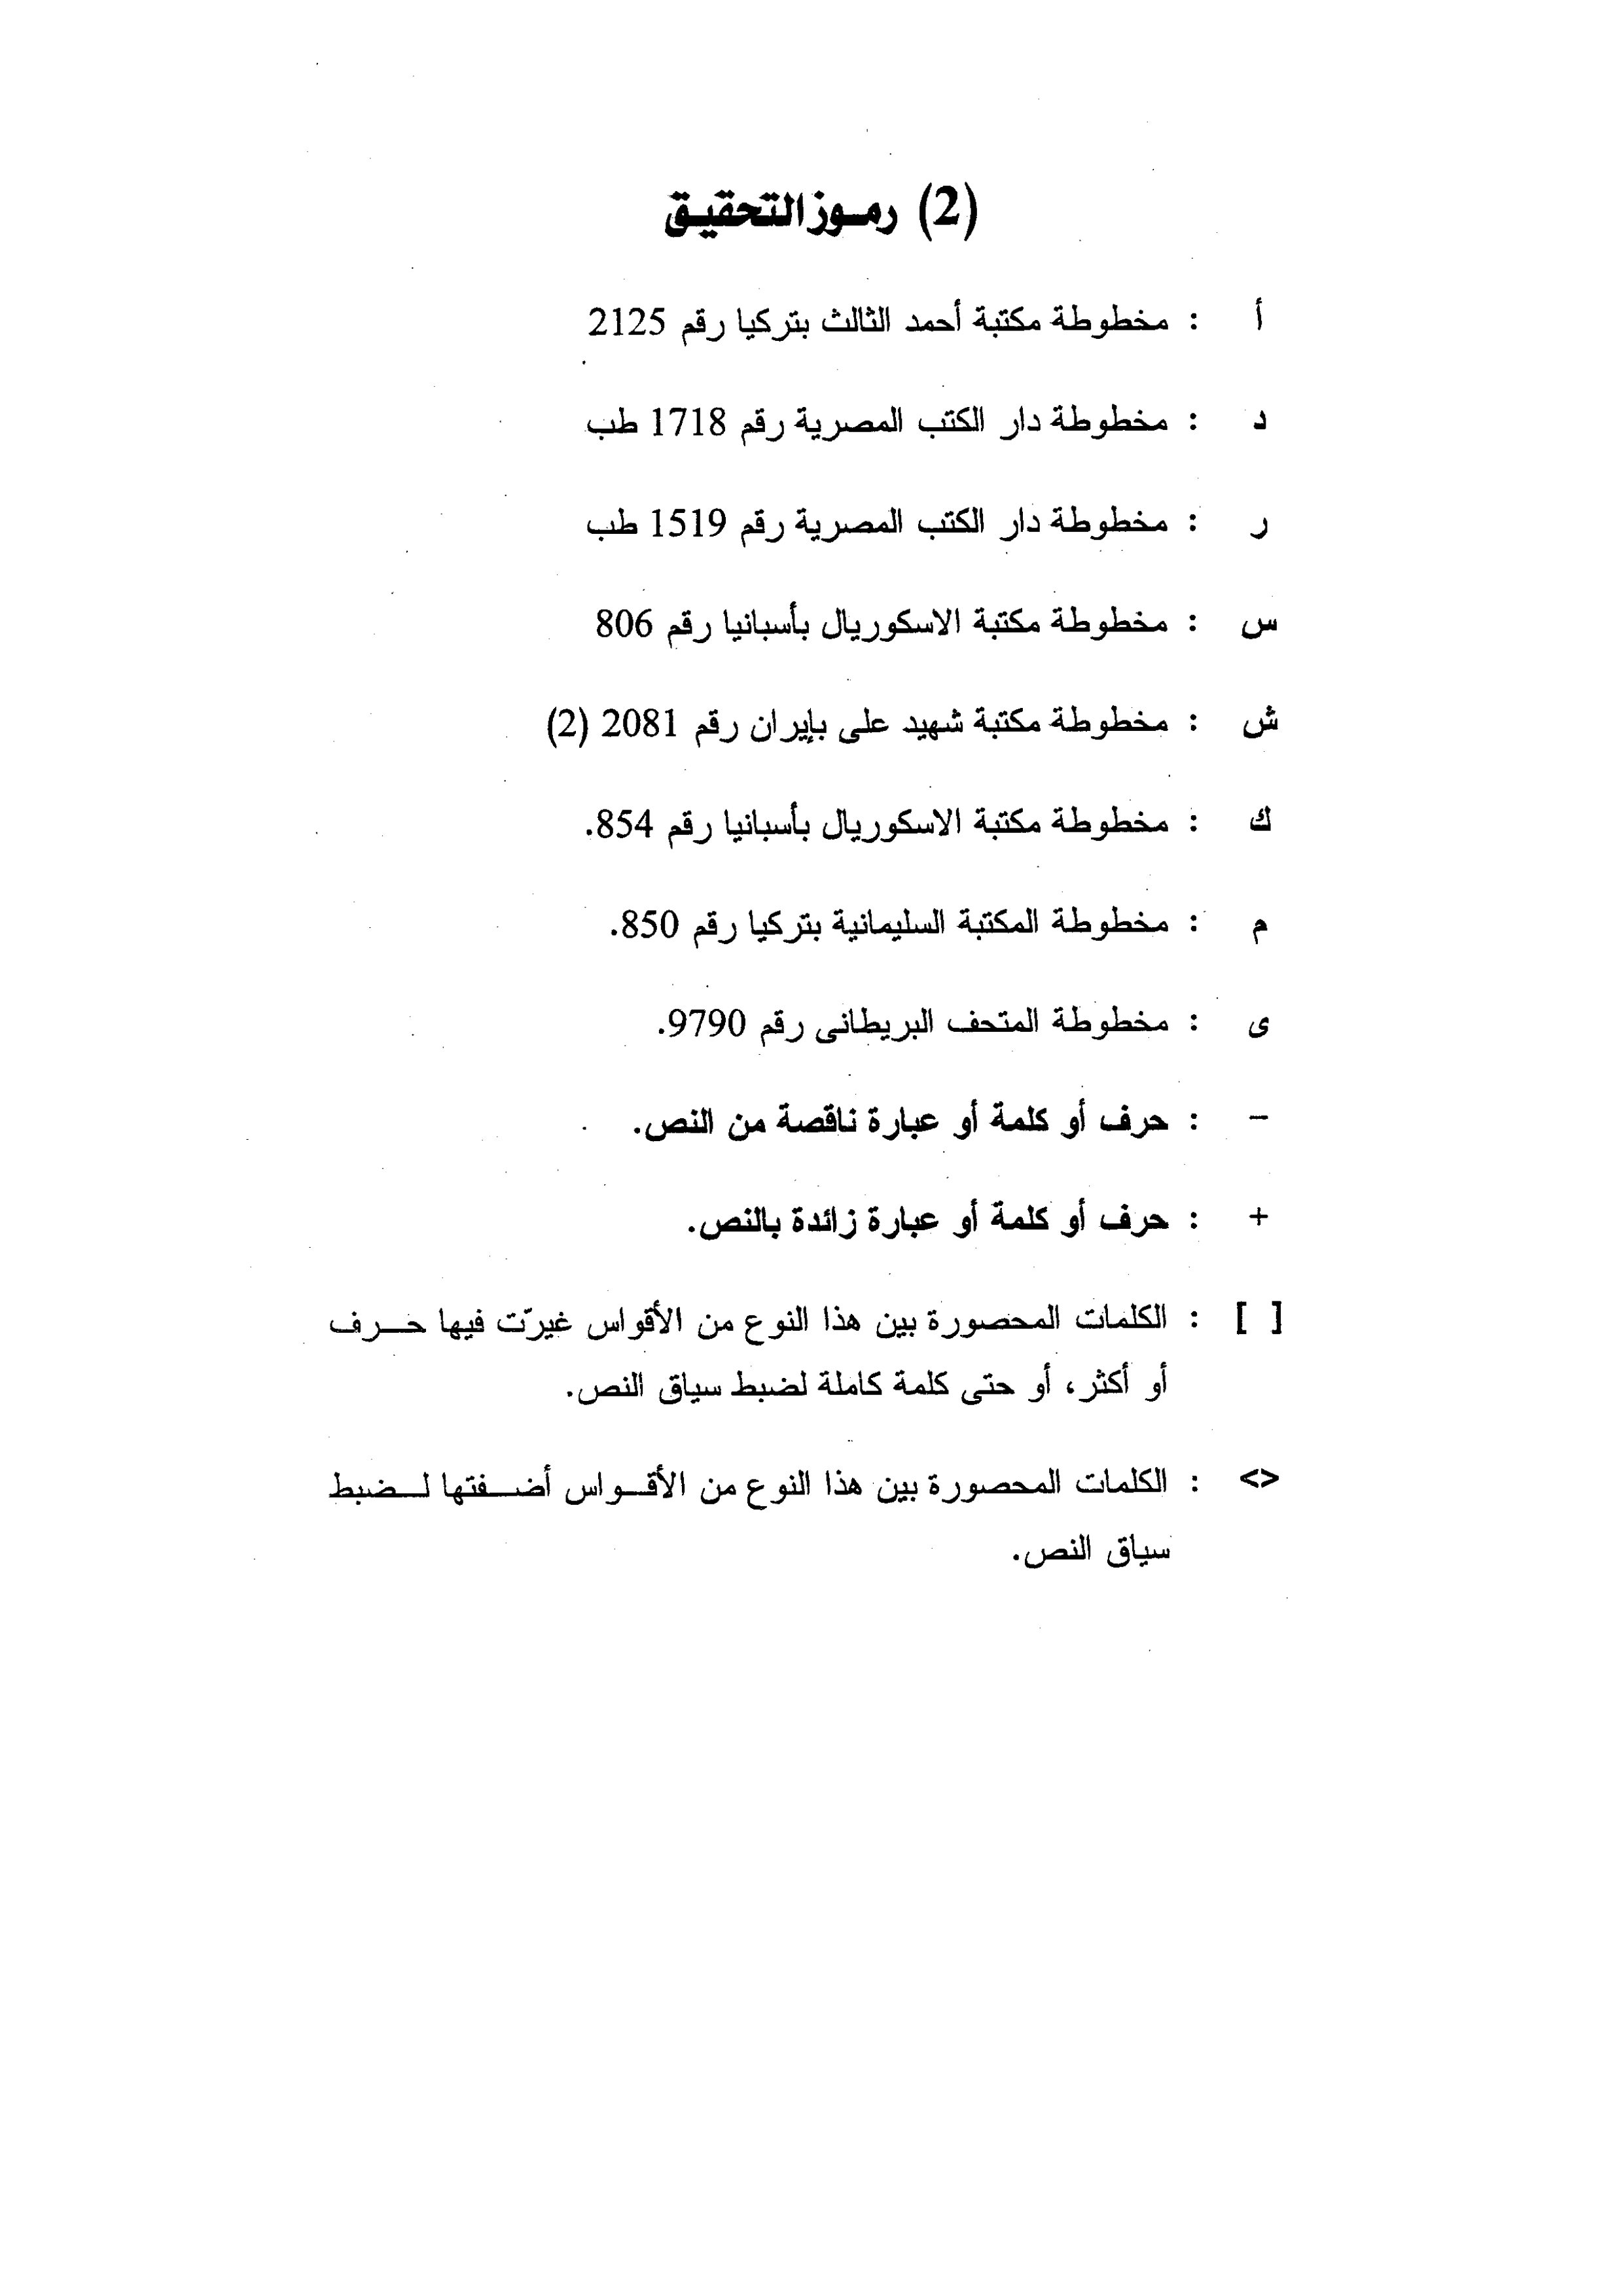 (2) رمـوز التحقيـق
أ : مخطوطة مكتبة أحمد الثالث بتركيا رقم 2125
د : مخطوطة دار الكتب المصرية رقم 1718 طب
ر : مخطوطة دار الكتب المصرية رقم 1519 طب
س : مخطوطة مكتبة الاسكوريال بأسبانيا رقم 806
ش : مخطوطة مكتبة شهيد على بإيران رقم 2081 (2)
ك : مخطوطة مكتبة الاسكوريال بأسبانيا رقم 854.
م : مخطوطة المكتبة السليمانية بتركيا رقم 850.
ى : مخطوطة المتحف البريطانى رقم 9790.
– : حرف أو كلمة أو عبارة ناقصة من النص.
+ : حرف أو كلمة أو عبارة زائدة بالنص.
[ ] : الكلمات المحصورة بين هذا النوع من الأقواس غيرّت فيها حـــرف
أو أكثر، أو حتى كلمة كاملة لضبط سياق النص.
<> : الكلمات المحصورة بين هذا النوع من الأقــواس أضــفتها لــضبط
سياق النص.